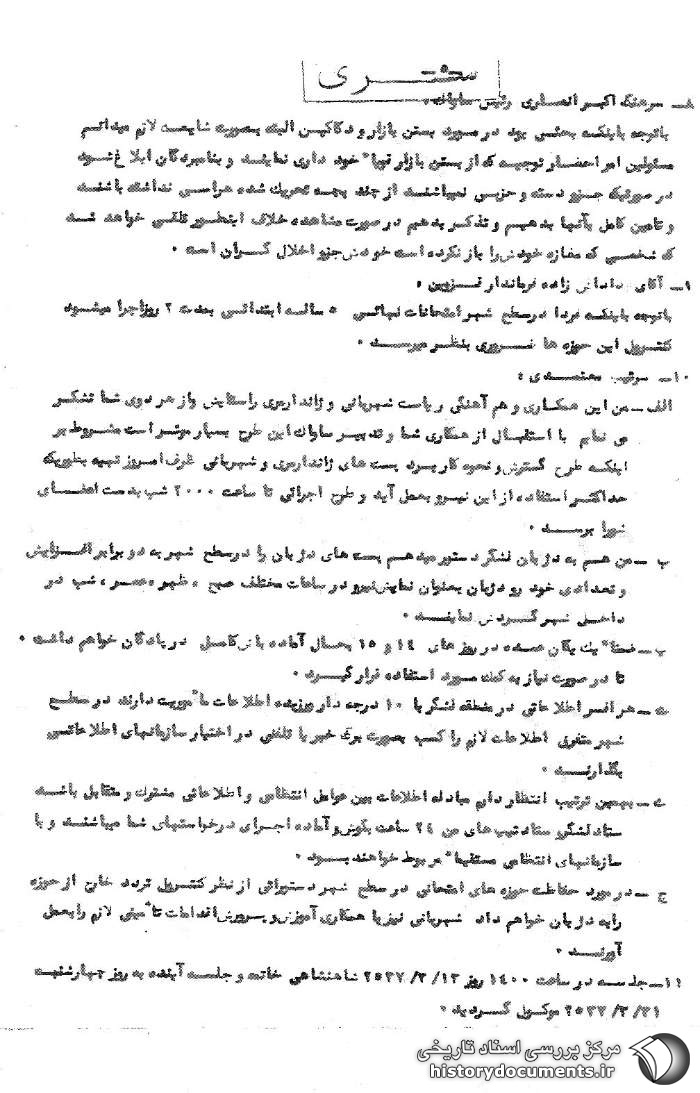 سری
۸ـ سرهنگ اکبر انصاری رئیس ساواک .
باتوجه باینکه بحثی بود در مورد بستن بازار و دکاکین البته بصورت شایعه لازم میدانم
مسئولین امر احضار توجیه که از بستن بازار تهیاً خود داری نمایند و بنامبردگان ابلاغ شود
در صورتیکه جزو دسته و حزبی نمیباشند از چند بچه تحریک شده هراسی نداشته باشند
و تامین کامل بآنها بدهیم و تذکر بدهیم در صورت مشاهده خلاف اینطور تلقی خواهد شد
که شخصی که مغازه خودش را باز نکرده است خودش جزو اخلال گران است .
آقای داداش زاده فرماندار قزوین .
باتوجه باینکه فردا در سطح شهر امتحانات نهائی ۵ ساله ابتدائی بمدت ۲ روز اجرا میشود
کنترل این حوزه ها ضروری بنظر میرسد .
۱۰ـ سرتیپ معتمدی .
الف ـ من این همکاری و هم آهنگی ریاست شهربانی و ژاندارمری را ستایش و از هر دوی شما تشکر
می نمایم با استقبال از همکاری شما و تدبیر ساواک این طرح بسیار موثر است مشروط بر
اینکه طرح گسترش و نحوه کاربرد پست های ژاندارمری و شهربانی ظرف امروز تهیه بطوریکه
حداکثر استفاده از این نیرو بعمل آید و طرح اجرائی تا ساعت ۲۰۰۰ شب بدست اعضای
شورا برسد .
ب ـ من هم به دژبان لشگر دستور میدهم پست های دژبان را در سطح شهر به دو برابر افزایش
و تعدادی خودرو دژبان بعنوان نمایش نیرو در ساعات مختلف صبح ، ظهر ، عصر ، شب در
داخل شهر گردش نمایند .
پ ـ ضمناً یک یگان عمده در روز های ۱۴ و ۱۵ بحال آماده باش کامل در پادگان خواهم داشت .
تا در صورت نیاز به کمک مورد استفاده قرار گیرد .
ت ـ هر افسر اطلاعاتی در منطقه لشگر با ۱۰ درجه دار ورزیده اطلاعات مأموریت دارند در سطح
شهر متفرق اطلاعات لازم را کسب بصورت برگ خبر یا تلفنی در اختیار سازمانهای اطلاعاتی
بگذارند .
ث ـ بهمین ترتیب انتظار دارم مبادله اطلاعات بین عوامل انتظامی و اطلاعاتی مشترک و متقابل باشد
ستاد لشگر و ستاد تیپ های من ۲۴ ساعت بگوش و آماده اجرای درخواستهای شما میباشند و با
سازمانهای انتظامی مستقیماً مربوط خواهند بود .
ج ـ در مورد حفاظت حوزه های امتحانی در سطح شهر دستوراتی از نظر کنترل تردد خارج از حوزه
را به دژبان خواهم داد شهربانی نیز با همکاری آموزش و پرورش اقدامات تأمینی لازم را بعمل
آورند .
۱۱ـ جلسه در ساعت ۱۴۰۰ روز ۱۳ /۳/ ۲۵۳۷ شاهنشاهی خاتمه و جلسه آینده به روز چهارشنبه
۳۱/ ۳/ ۲۵۳۷ موکول گردید .
مرکز بررسی اسناد تاریخی
historydocuments.ir